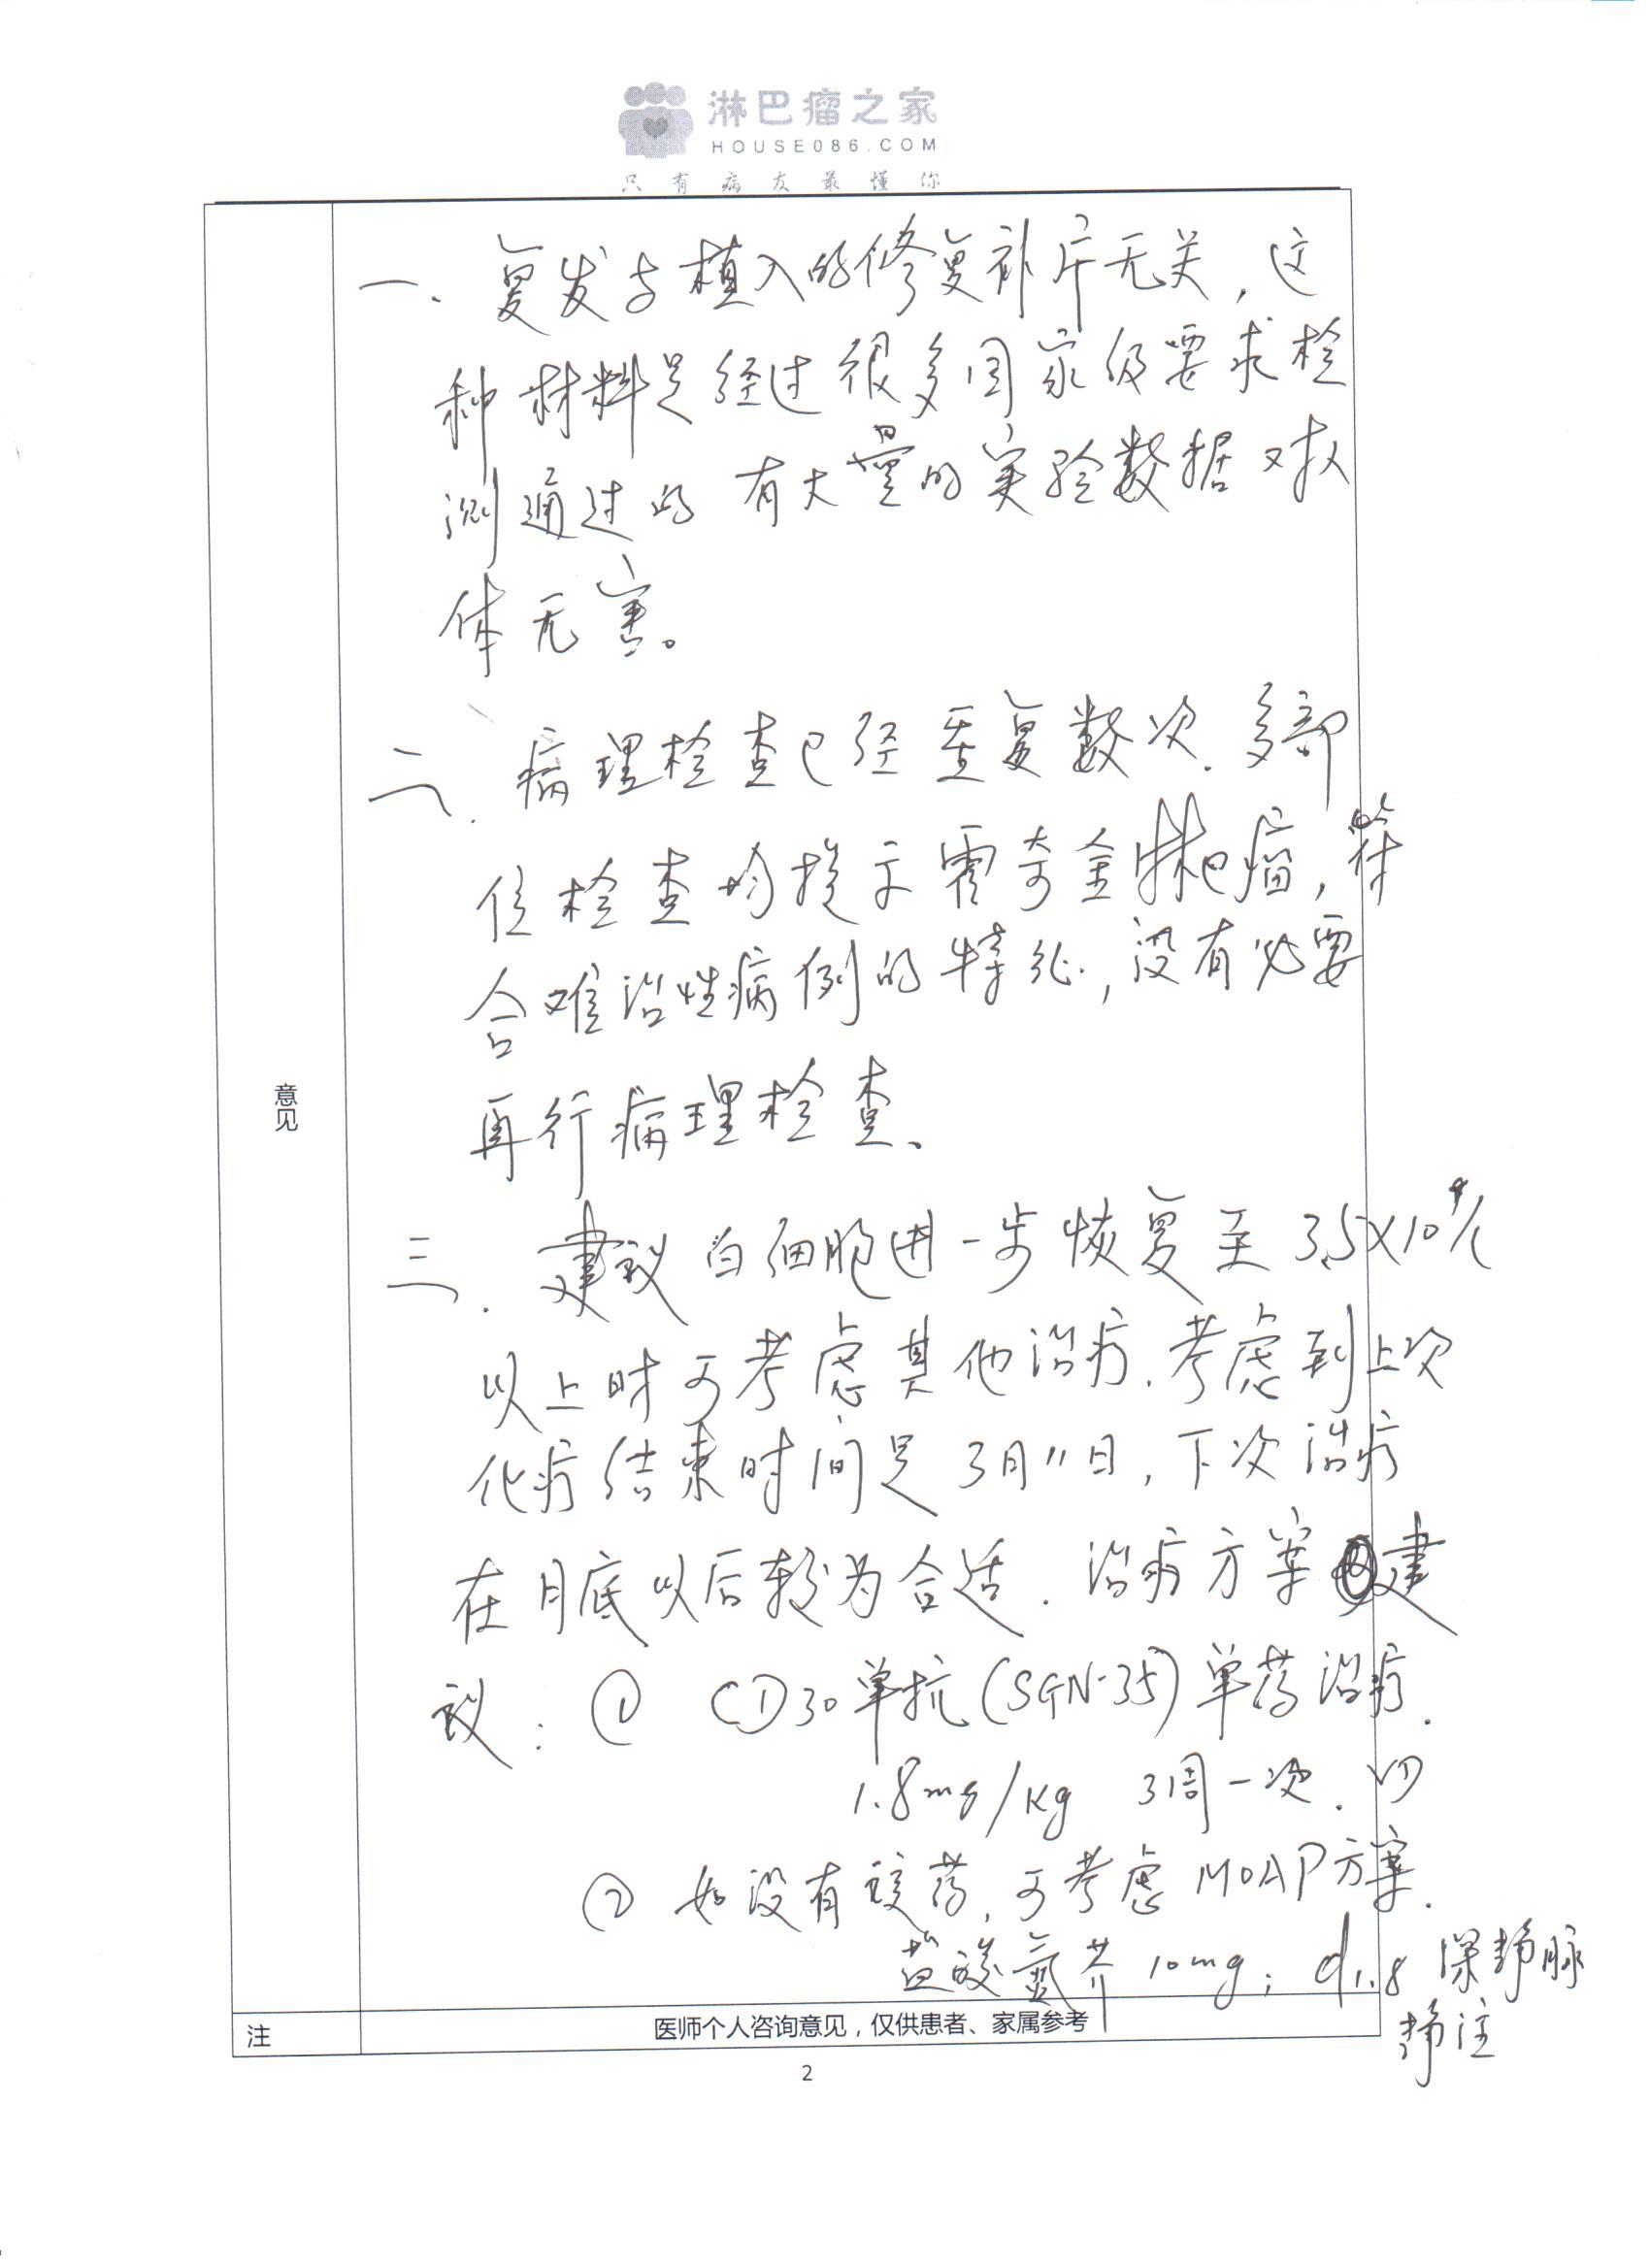 淋巴瘤之家
HOUSE086.COM
只有病友最懂你
一、复发与植入的修复补片无关，这
种材料是经过很多国家级要求检
测通过的 有大量的实验数据对人
体无害。
二、病理检查已经重复数次.多部
位检查均提示霍奇金淋巴瘤，符
合难治性病例的特征，没有必要
再行病理检查、
意见
三.建议白细胞进一步恢复至3.5×10⁹/L
以上时可考虑其他治疗.考虑到上次
化疗结束时间是3月11日，下次治疗
在月底以后较为合适.治疗方案建
议：① CD30单抗(SGN-35)单药治疗.
1.8mg/kg 3周一次.
② 如没有该药，可考虑MOAP方案.
盐酸氮芥10mg; d1.8 深静脉
静注
注
医师个人咨询意见，仅供患者、家属参考
2